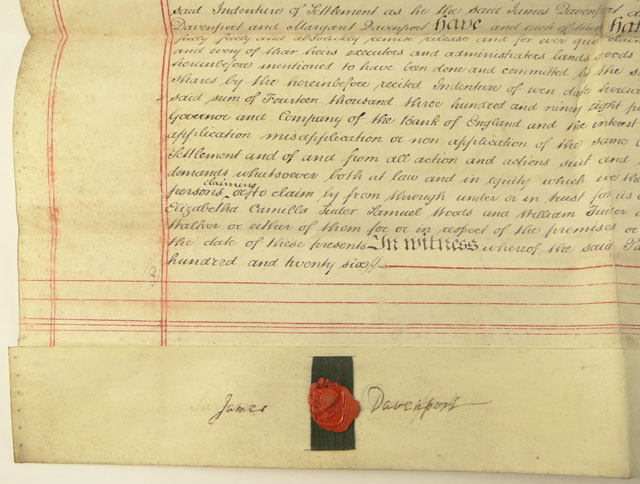 said Indenture of Settlement as he the said James Davenport
Davenport and Margaret Davenport Have and each of them hath
fully freely and absolutely remise release and for ever quit claim
and every of their heirs executors and administrators lands goods
hereinbefore mentioned to have been done and committed by the
shares by the hereinbefore recited Indenture of even date
said sum of Fourteen thousand three hundred and ninety eight
Governor and Company of the Bank of England and the interest
application misapplication or non application of the same
Settlement and of and from all action and actions suit and
demands whatsoever both at law and in equity which we
claiming
persons or to claim by from through under or in trust for us
Elizabetha Camilla Tuder Samuel Woods and William Tuder
Walker or either of them for or in respect of the premises or
the date of these presents In witness whereof the said
hundred and twenty six
James Davenport